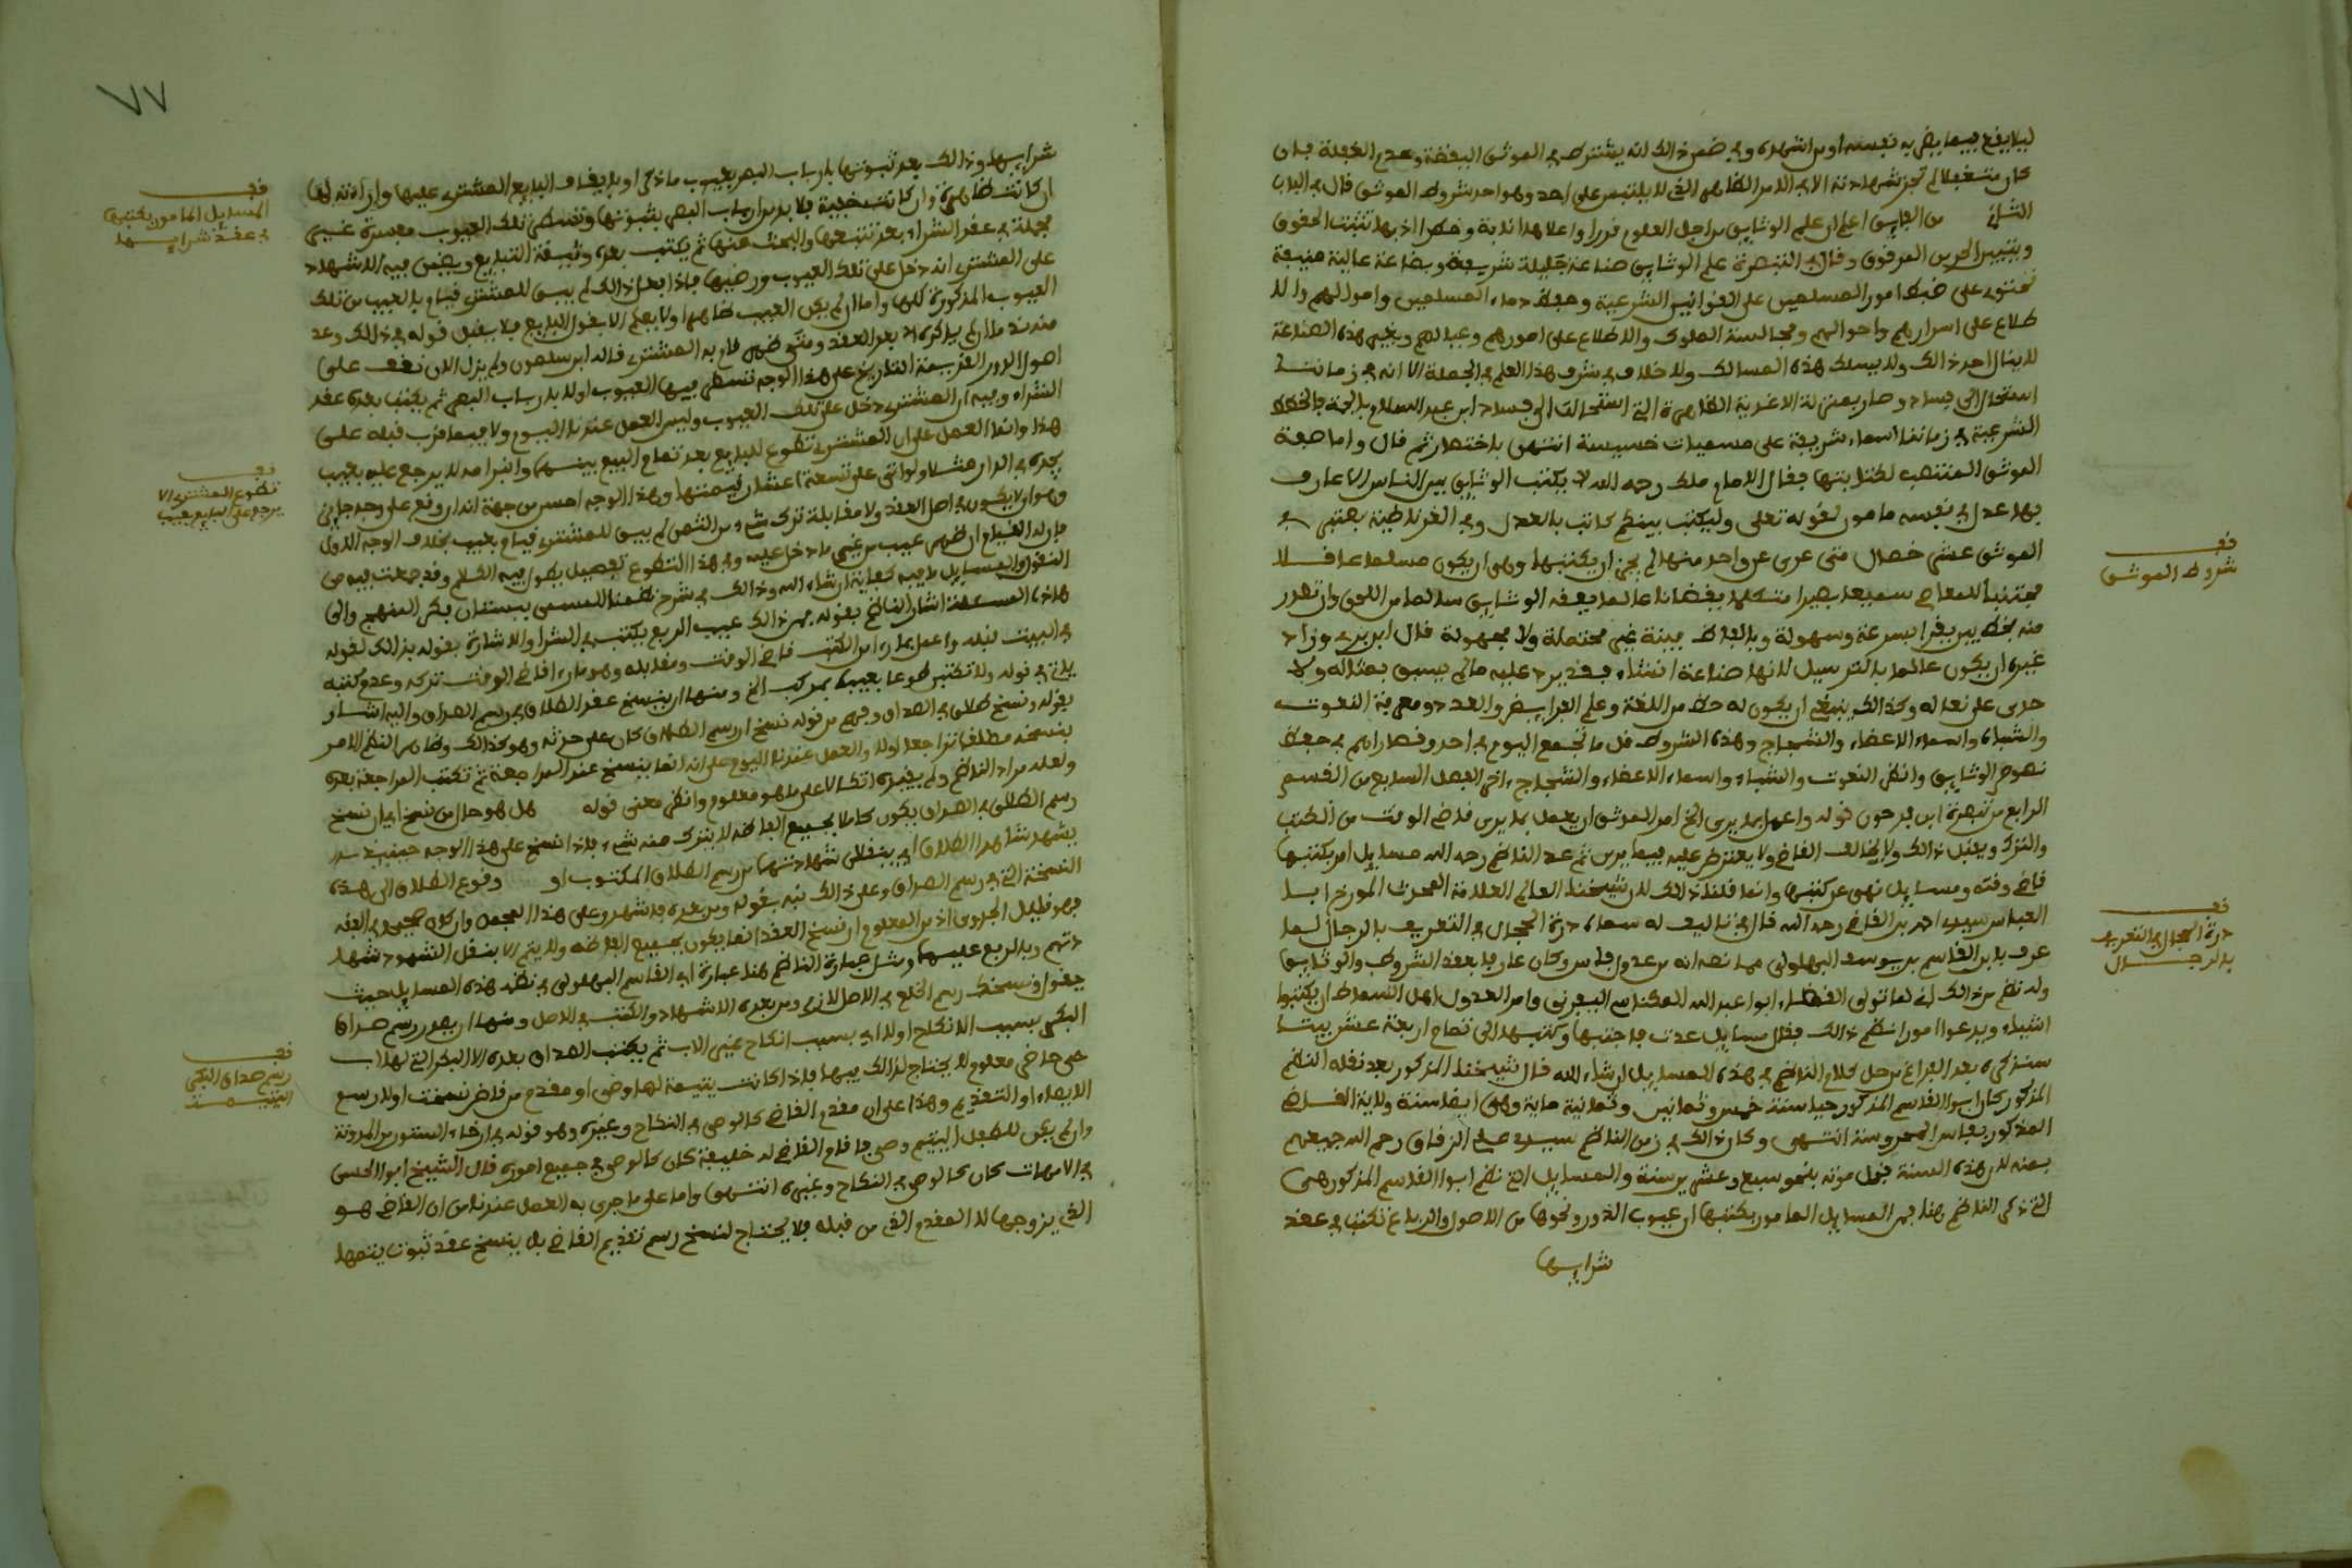 ليلا يقع فيما يضر به نفسه او من اشهده وفي ضمن ذالك انه يشترط في الموثق اليقظة وعدم الغفلة فان
كان متغفلا لم تجز شهادته الا في الامر الظاهر الذي لا يلتبس على احد وهو احد شروط الموثق قال في الباب
الثاني من الفايق اعلم ان علم الوثايق من اجل العلوم قدرا واعلاها انابة وخطرا اذ بها تثبت الحقوق
ويتميز الحر من المرقوق وقال في التبصرة علم الوثايق صناعة جليلة شريفة وبضاعة عالية منيفة
تحتوي على ضبط امور المسلمين على القوانين الشرعية وحفظ دماء المسلمين واموالهم والا
طلاع على اسرارهم واحوالهم ومجالسة الملوك والاطلاع على امورهم وعيالهم وبغير هذه الصناعة
لا ينال احد ذالك ولا يسلك هذه المسالك ولا خلاف في شرف هذا العلم في الجملة الا انه في زماننا
استحال الى فساد وصار بمنزلة الاغذية الطاهرة التي استحالت الى فساد ابن عبد السلام
الشرعية في زماننا اسماء شريفة على مسميات خسيسة انتهى باختصار ثم قال واما صفة
الموثق المنتصب لكتابتها فقال الامام ملك رحمه الله لا يكتب الوثايق بين الناس الا عارف
بها عدل في نفسه مامون لقوله تعلى وليكتب بينكم كاتب بالعدل وفي الغرناطية يعتبر في
الموثق عشر خصال متى عرى عن واحد منها لم يجز ان يكتبها وهي ان يكون مسلما عاقلا
مجتنبا للمعاصي سميعا بصيرا متكلما يقظانا عالما بفقه الوثايق سالما من اللحن وان تصدر
منه بخط بين يقرا بسرعة وسهولة وبالفاظ بينة غير محتملة ولا مجهولة قال ابن بري وزاد
غيره ان يكون عالما بالترسيل لانها صناعة انشاء فقد يرد عليه ما لم يسبق بمثاله ولا
حذي على نعاله وكذالك ينبغي ان يكون له حظ من اللغة وعلم الفرايض والعدد ومعرفة النعوت
والشيات واسماء الاعضاء والشجاج وهذه الشروط قل ما تجتمع اليوم في احد وقصاراهم في حفظ
نصوص الوثايق وانظر النعوت والشيات واسماء الاعضاء والشجاج اخر الفصل السابع من القسم
الرابع من تبصرة ابن فرحون قوله واعمل بما يرى الخ امر الموثق ان يعمل بما يرى قاضي الوقت من الكتب
والترك ويمتثل ذالك ولا يخالف القاضي ولا يعترض عليه فيما يرى ثم عد الناظم رحمه الله مسايل امر بكتبها
قاضي وقته ومسايل نهى عن كتبها وانما قلنا ذالك لان شيخنا العالم العلامة المحدث المورخ ابا
العباس سيدي احمد بن القاضي رحمه الله قال في تاليف له سماه درة الحجال في التعريف بالرجال لما
عرف بابن القاسم بن يوسف البهلولي ما نصه انه من عدول فاس وكان عارفا بعقد الشروط والوثايق
وله نظم من ذالك اني لما تولى القضاء ابو عبد الله المكناسي اليفرني وامر العدول اهل السماط ان يكتبوا
اشياء ويدعوا امورا نظم ذالك فقال مسايل عدت فاجتنبها وكتبها الى تمام اربعة عشر بيتا
سنذكره بعد الفراغ من حل كلام الناظم في هذه المسايل ان شاء الله قال شيخنا المذكور بعد نقله النظم
المذكور كان ابو القاسم المذكور حيا سنة خمس وثمانين وثمانية ماية وهي ايضا سنة ولاية القاضي
المذكور بفاس المحروسة انتهى وكان ذالك في زمن الناظم سيدي علي الزقاق رحم الله جميعهم
بمنه لان هذه السنة قبل موته بنحو سبع وعشرين سنة والمسايل التي نظم ابو القاسم المذكور هي
التي ذكر الناظم هنا فمن المسايل المامور بكتبها ان عيوب الدور ونحوها من الاصول والرباع تكتب في عقد
شرايها
قف
شروط الموثق
قف
درة الحجال في التعريف
بالرجال
٧٧
شرايها وذالك بعد ثبوتها بارباب البصر بعيوب ما ذكر او باعتراف البايع للمشتري عليها واراءته لها
ان كانت ظاهرة وان كانت خفية فلا بد من ارباب البصر بثبوتها وتسطر تلك العيوب مفسرة غير
مجملة في عقد الشراء بعد تتبعها والبحث عنها ثم يكتب بعده وثيقة التبايع ويضمن فيه الاشهاد
على المشتري انه دخل على تلك العيوب ورضيها فاذا فعل ذالك لم يبق للمشتري قيام بالعيب من تلك
العيوب المذكورة كلها واما ان لم يكن العيب ظاهرا ولا يعلم الا بقول البايع فلا يقبل قوله في ذالك وعد
منه ندما ان لم يذكره الا بعد العقد ومتى ظهر قام به المشتري قاله ابن سلمون ولم يزل الان نقف على
اصول الدور القديمة التاريخ على هذا الوجه تسطر فيها العيوب اولا بارباب البصر ثم يكتب بعده عقد
الشراء وفيه ان المشتري دخل على تلك العيوب وليس العمل عندنا اليوم ولا فيما قرب قبله على
هذا وانما العمل على ان المشتري تطوع للبايع بعد تمام البيع بينهما وانبرامه لا يرجع عليه بعيب
يجده في الدار مثلا ولو اتى على تسعة اعشار قيمتها وهذا الوجه احسن من جهة انه ان وقع على وجه جايز
وهو ان لا يكون في اصل العقد ولا مقابلة ترك شيء من الثمن لم يبق للمشتري قيام بعيب بخلاف الوجه الاول
فان له القيام ان ظهر عيب من غير ما دخل عليه وفي هذا التطوع تفصيل يطول فيه الكلام وقد جمعت فيه من
النقول والمسايل ما فيه كفاية ان شاء الله وذالك في شرح نظمنا المسمى ببستان فكر المنهج والى
هاذه المسئلة اشار الناظم بقوله فمن ذالك عيب الربع يكتب في الشرا والاشارة بقوله بذالك لقوله
في البيت قبله واعمل بما راى من الكتب قاضي الوقت ومقابله وهو ما راى قاضي الوقت تركه وعدم كتبه
ياتي في قوله ولا تكتبن طوعا بعيب بمركب الخ ومنها ان ينسخ عقد الطلاق في رسم الصداق واليه اشار
بقوله ونسخ طلاق في الصداق وفهم من قوله نسخ ان رسم الطلاق كان على حدته وهو كذالك وظاهر النظم الامر
بنسخه مطلقا تراجعا اولا والعمل عندنا اليوم على انه انما ينسخ عند المراجعة ثم تكتب المراجعة بعده
ولعله مراد الناظم ولم يقيده اتكالا على ما هو معلوم وانظر معنى قوله هل هو حال من نسخ اي ان نسخ
رسم الطلاق في الصداق يكون كاملا بجميع الفاظه لا يترك منه شيء فاذا نسخ على هذا الوجه حينيذ
يشهد شاهدا الطلاق اي بنقل شهادتهما من رسم الطلاق المكتوب او وقوع الطلاق الى هذه
النسخة التي في رسم الصداق وعلى ذالك نبه بقوله ومن بعده فاشهد وعلى هذا المحمل وان كان صحيحا في الفقه
فهو قليل الجدوى اذ من المعلوم ان نسخ العقد انما يكون بجميع الفاظه ولا يتم الا بنقل الشهود شهاد
تهم وبالربع عليهما ومثل عبارة الناظم هنا عبارة ابي القاسم البهلولي في نظم هذه المسايل حيث
يقول ونسخك رسم الخلع في الاصل لازم ومن بعده الاشهاد والكتب في الاصل ومنها ان يصدر رسم صداق
البكر بسبب الانكاح اولا اي بسبب انكاح غير الاب ثم يكتب الصداق بعده الا البكر التي لها اب
حي حاضر معلوم لا يحتاج لذالك فيها فاذا كانت يتيمة لها وصي او مقدم من قاض نسخت اولا رسم
الايصاء او التقديم وهذا على ان مقدم القاضي كالوصي في النكاح وغيره وهو قوله في ارخاء الستور من المدونة
وان لم يكن للطفل اليتيم وصي فاقام القاضي له خليفة كان كالوصي في جميع اموره قال الشيخ ابو الحسن
في الامهات كان كالوصي في النكاح وغيره انتهى واما على ما جرى به العمل عندنا من ان القاضي هو
الذي يزوجها لا المقدم الذي من قبله فلا يحتاج لنسخ رسم تقديم القاضي بل ينسخ عقد ثبوت يتمها
قف
المسايل المامور بكتبها
في عقد شرايها
قف
تطوع المشتري الا
يرجع على البايع بعيب
قف
رسم صداق البكر
اليتيمة